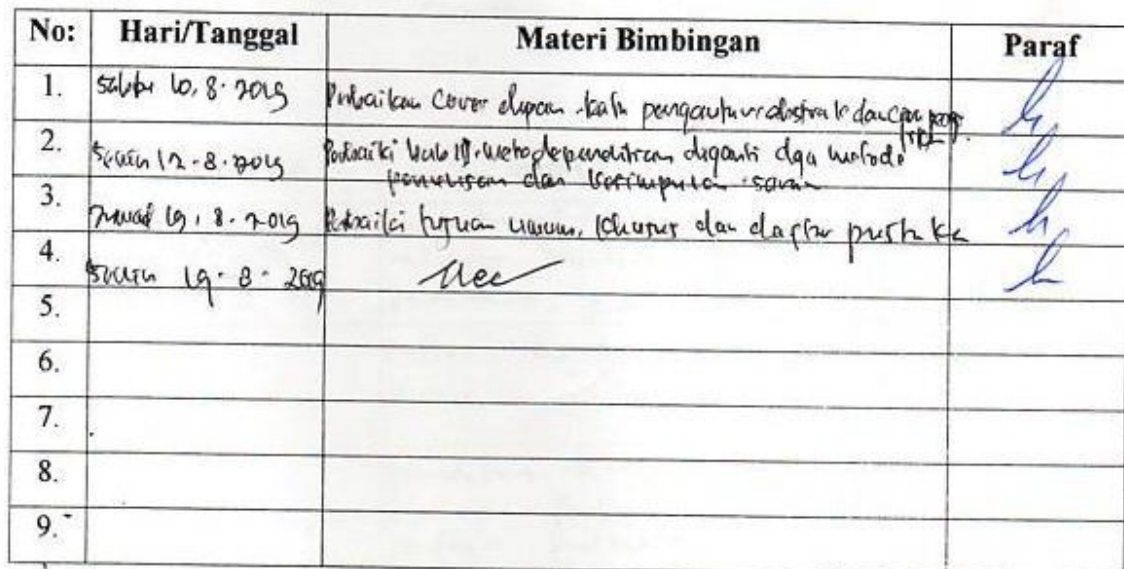 No: Hari/Tanggal Materi Bimbingan Paraf
1. Sabtu 10, 8. 2019 Perbaikan Cover depan. kata pengantar abstrak dan
2. Senin 12-8-2019 Perbaiki bab III. metode penelitian diganti dgn metode
penulisan dan kesimpulan saran
3. 8. 2019 Perbaiki tujuan umum, khusus dan daftar pustaka
4. Senin 19-8-2019 Acc
5.
6.
7.
8.
9.